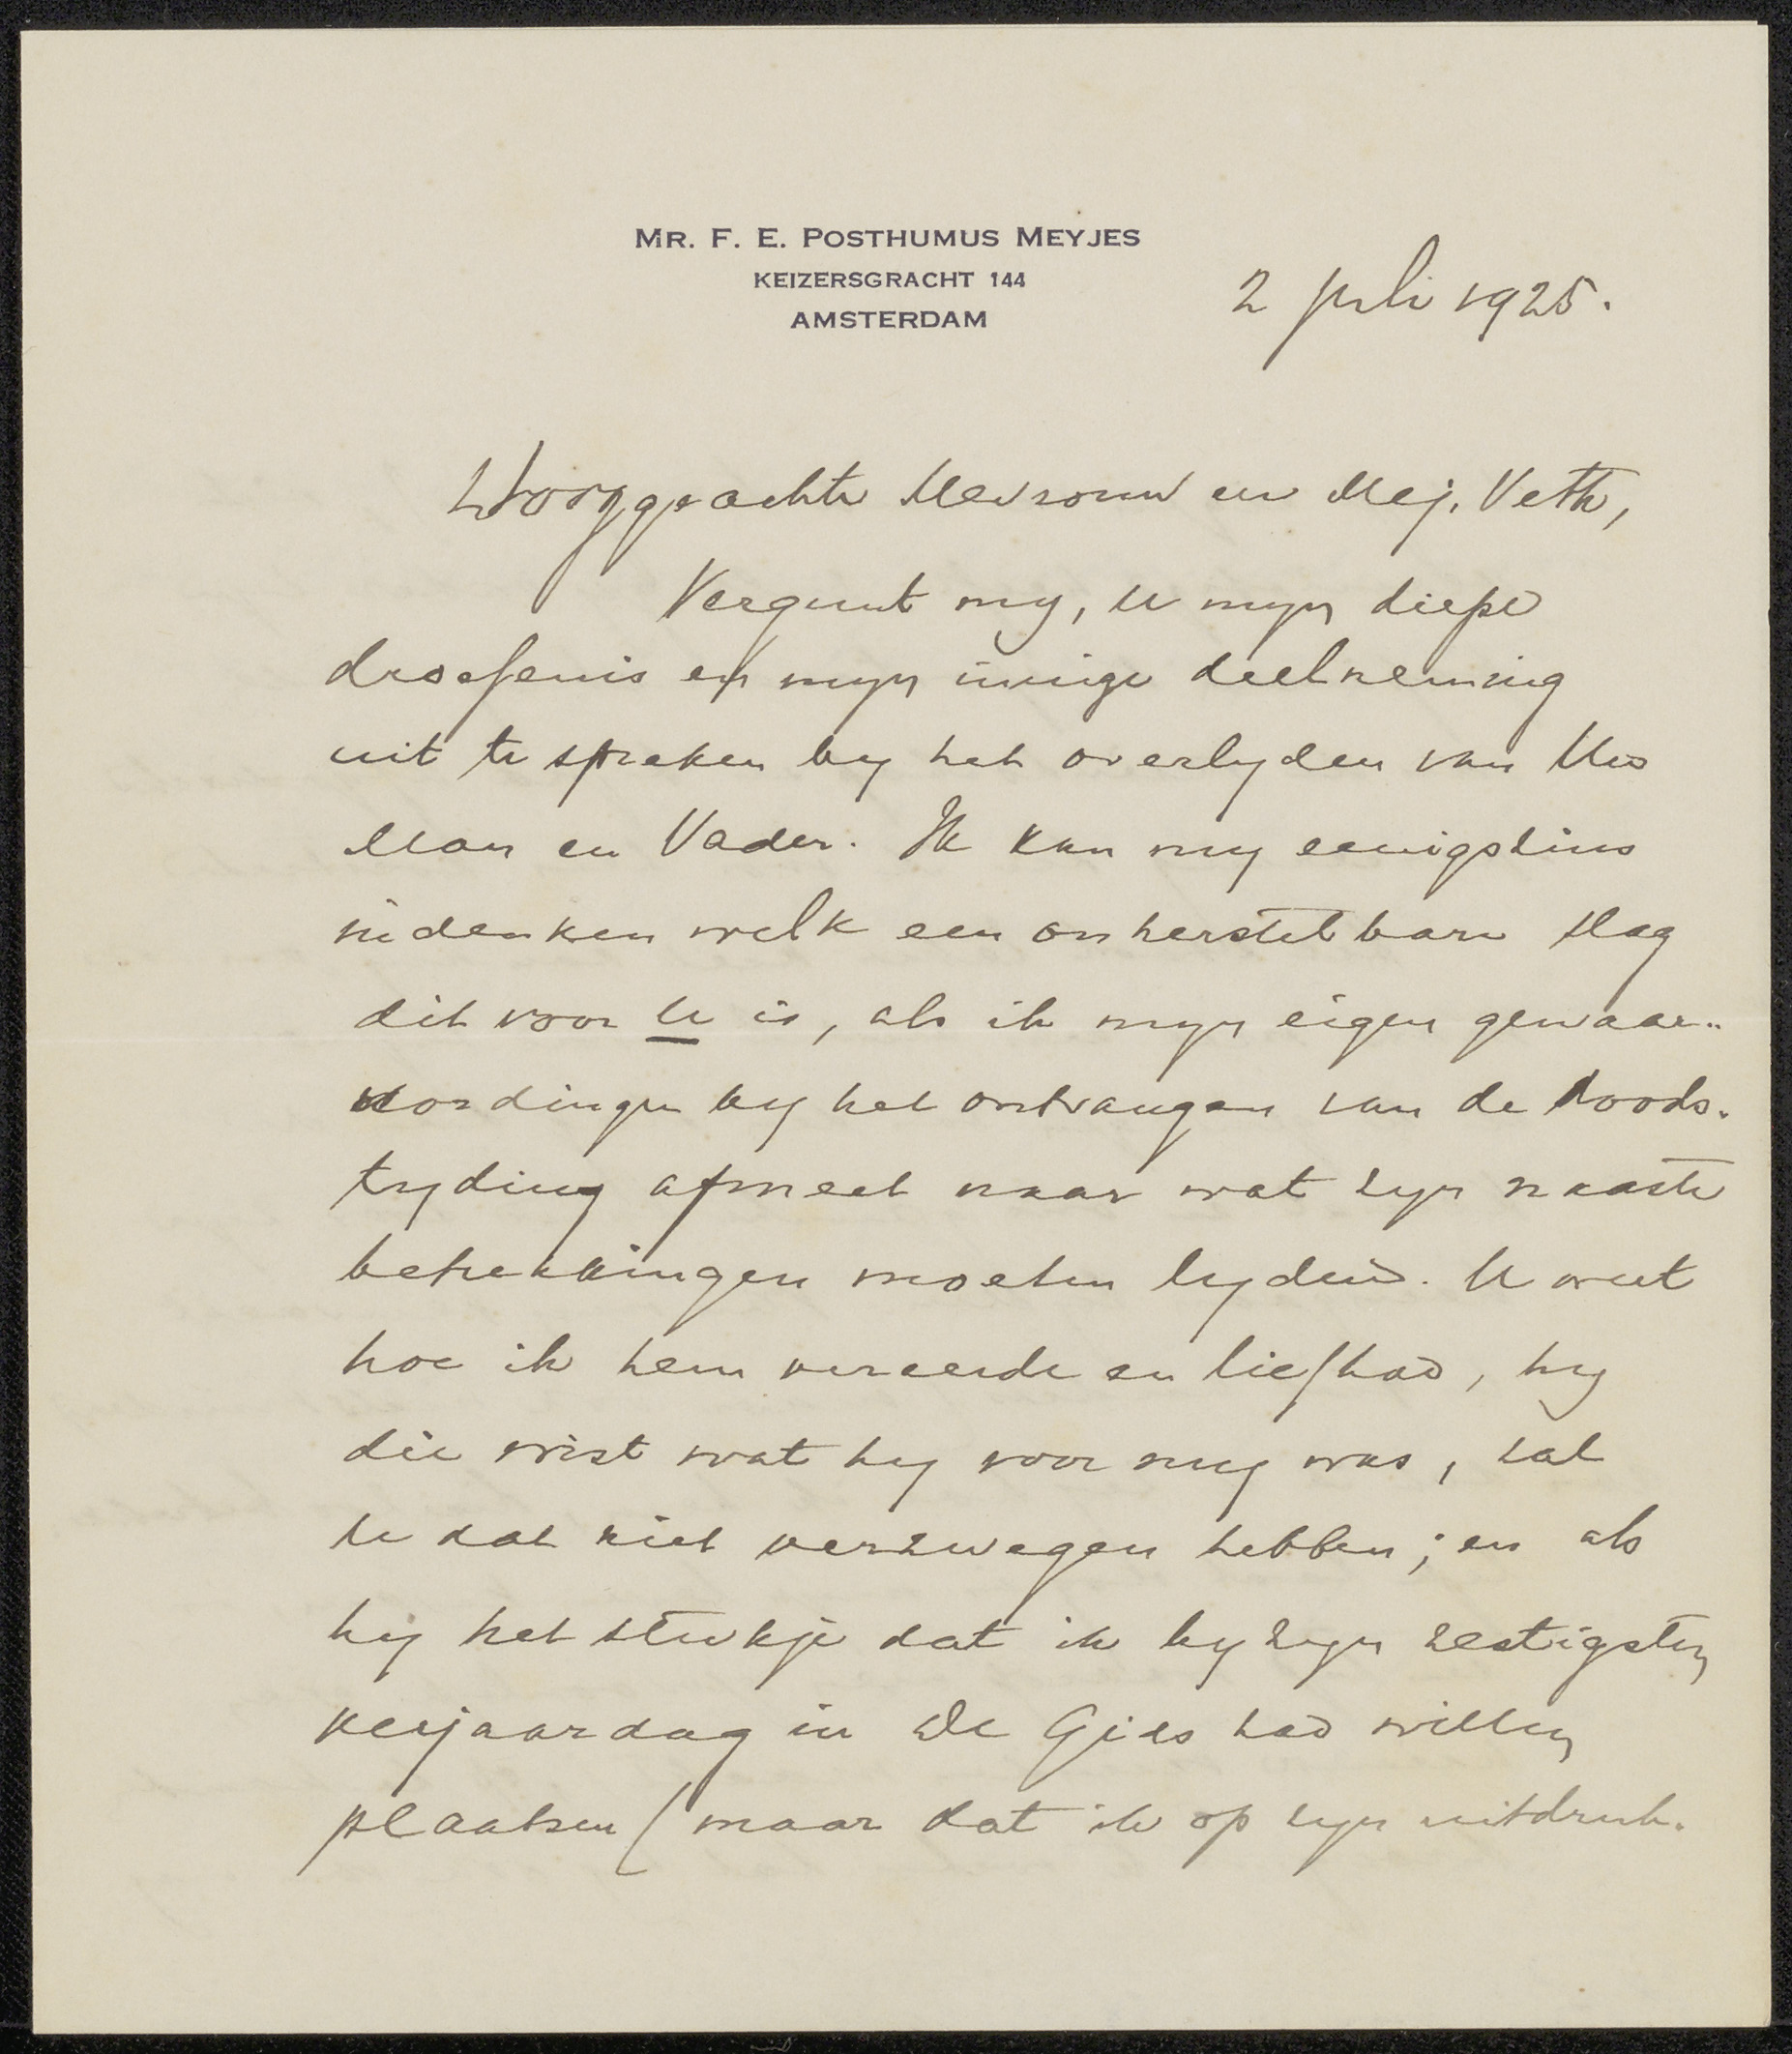 MR. F. E. POSTHUMUS MEYJES
KEIZERSGRACHT 144
AMSTERDAM
2 Juli 1925.
Hooggeachte Mevrouw en Mej. Veth,
Vergunt my, U myn diepe
droefenis en myn innige deelneming
uit te spreken by het overlyden van Uw
Man en Vader. Ik kan my eenigszins
indenken welk een onherstelbare slag
dit voor U is, als ik myn eigen gewaar-
wordingen by het ontvangen van de doods-
tyding afmeet naar wat zyn naaste
betrekkingen moeten lyden. U weet
hoe ik hem vereerde en liefhad, hy
die wist wat hy voor my was, zal
U dat niet verzwegen hebben; en als
hy het stukje dat ik by zyn zestigsten
verjaardag in De Gids had willen
plaatsen (maar dat ik op zyn uitdruk-